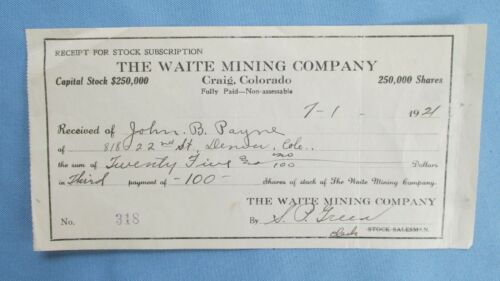 RECEIPT FOR STOCK SUBSCRIPTION
THE WAITE MINING COMPANY
Capital Stock $250,000 Craig, Colorado 250,000 Shares
Fully Paid—Non-assessable
7-1- 1921
Received of John B. Payne
of 818 22nd St, Denver, Colo..
the sum of Twenty Five & no/100 Dollars
in Third payment of -100- Shares of stock of The Waite Mining Company.
THE WAITE MINING COMPANY
No. 318 By S. P. Green
STOCK SALESMAN.